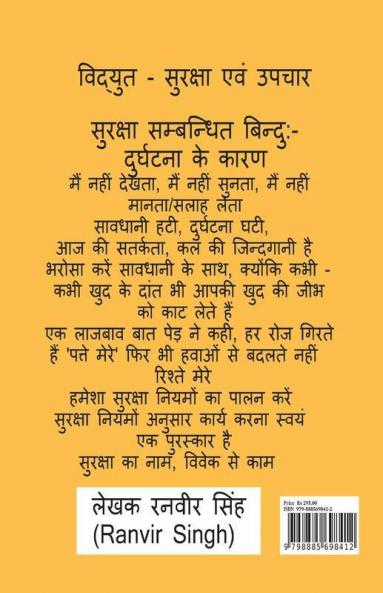 विद्युत - सुरक्षा एवं उपचार
सुरक्षा सम्बन्धित बिन्दु:-
दुर्घटना के कारण
मैं नहीं देखता, मैं नहीं सुनता, मैं नहीं
मानता/सलाह लेता
सावधानी हटी, दुर्घटना घटी,
आज की सतर्कता, कल की जिन्दगानी है
भरोसा करें सावधानी के साथ, क्योंकि कभी -
कभी खुद के दांत भी आपकी खुद की जीभ
को काट लेते हैं
एक लाजबाव बात पेड़ ने कही, हर रोज गिरते
हैं 'पत्ते मेरे' फिर भी हवाओं से बदलते नहीं
रिश्ते मेरे
हमेशा सुरक्षा नियमों का पालन करें
सुरक्षा नियमों अनुसार कार्य करना स्वयं
एक पुरस्कार है
सुरक्षा का नाम, विवेक से काम
लेखक रनवीर सिंह
(Ranvir Singh)
Price Rs 295.00
ISBN 979-888569841-2
9 798885 698412